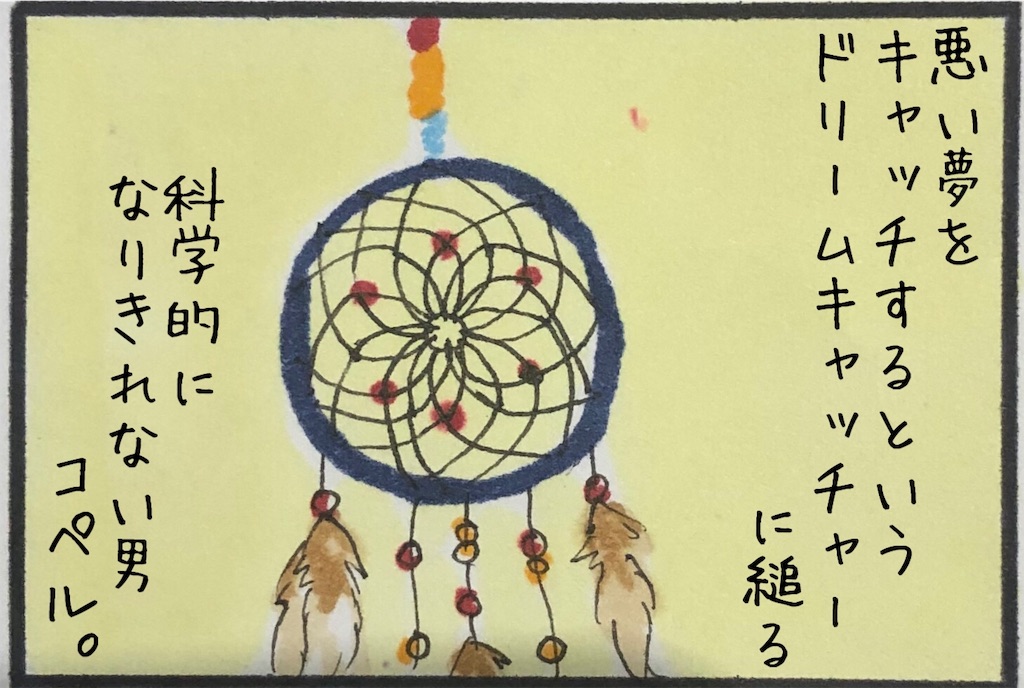 悪い夢を
キャッチするという
ドリームキャッチャー
に縋る
科学的に
なりきれない男
コペル。